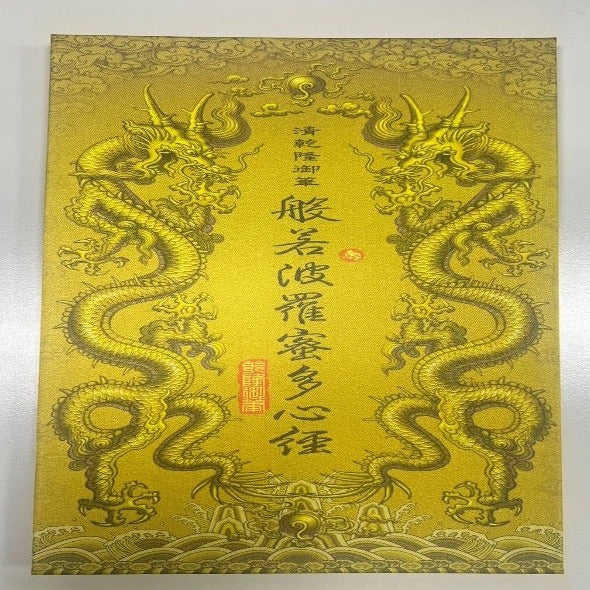 清乾隆御筆
般若波羅蜜多心経